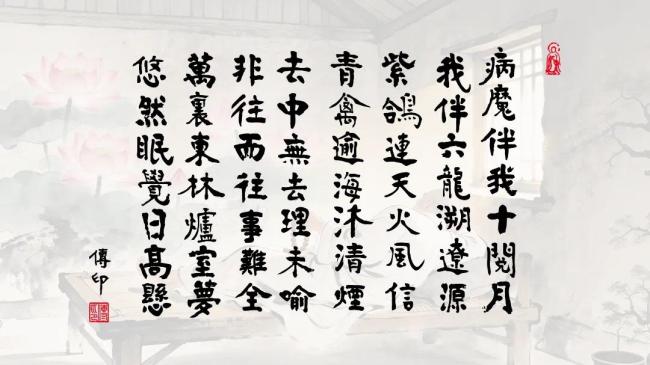 病魔伴我十閱月
我伴六龍溯遼源
紫鴿連天火風信
青禽逾海沐清煙
去中無去理未喻
非往而往事難全
萬裏東林爐室夢
悠然眠覺日高懸
傳印